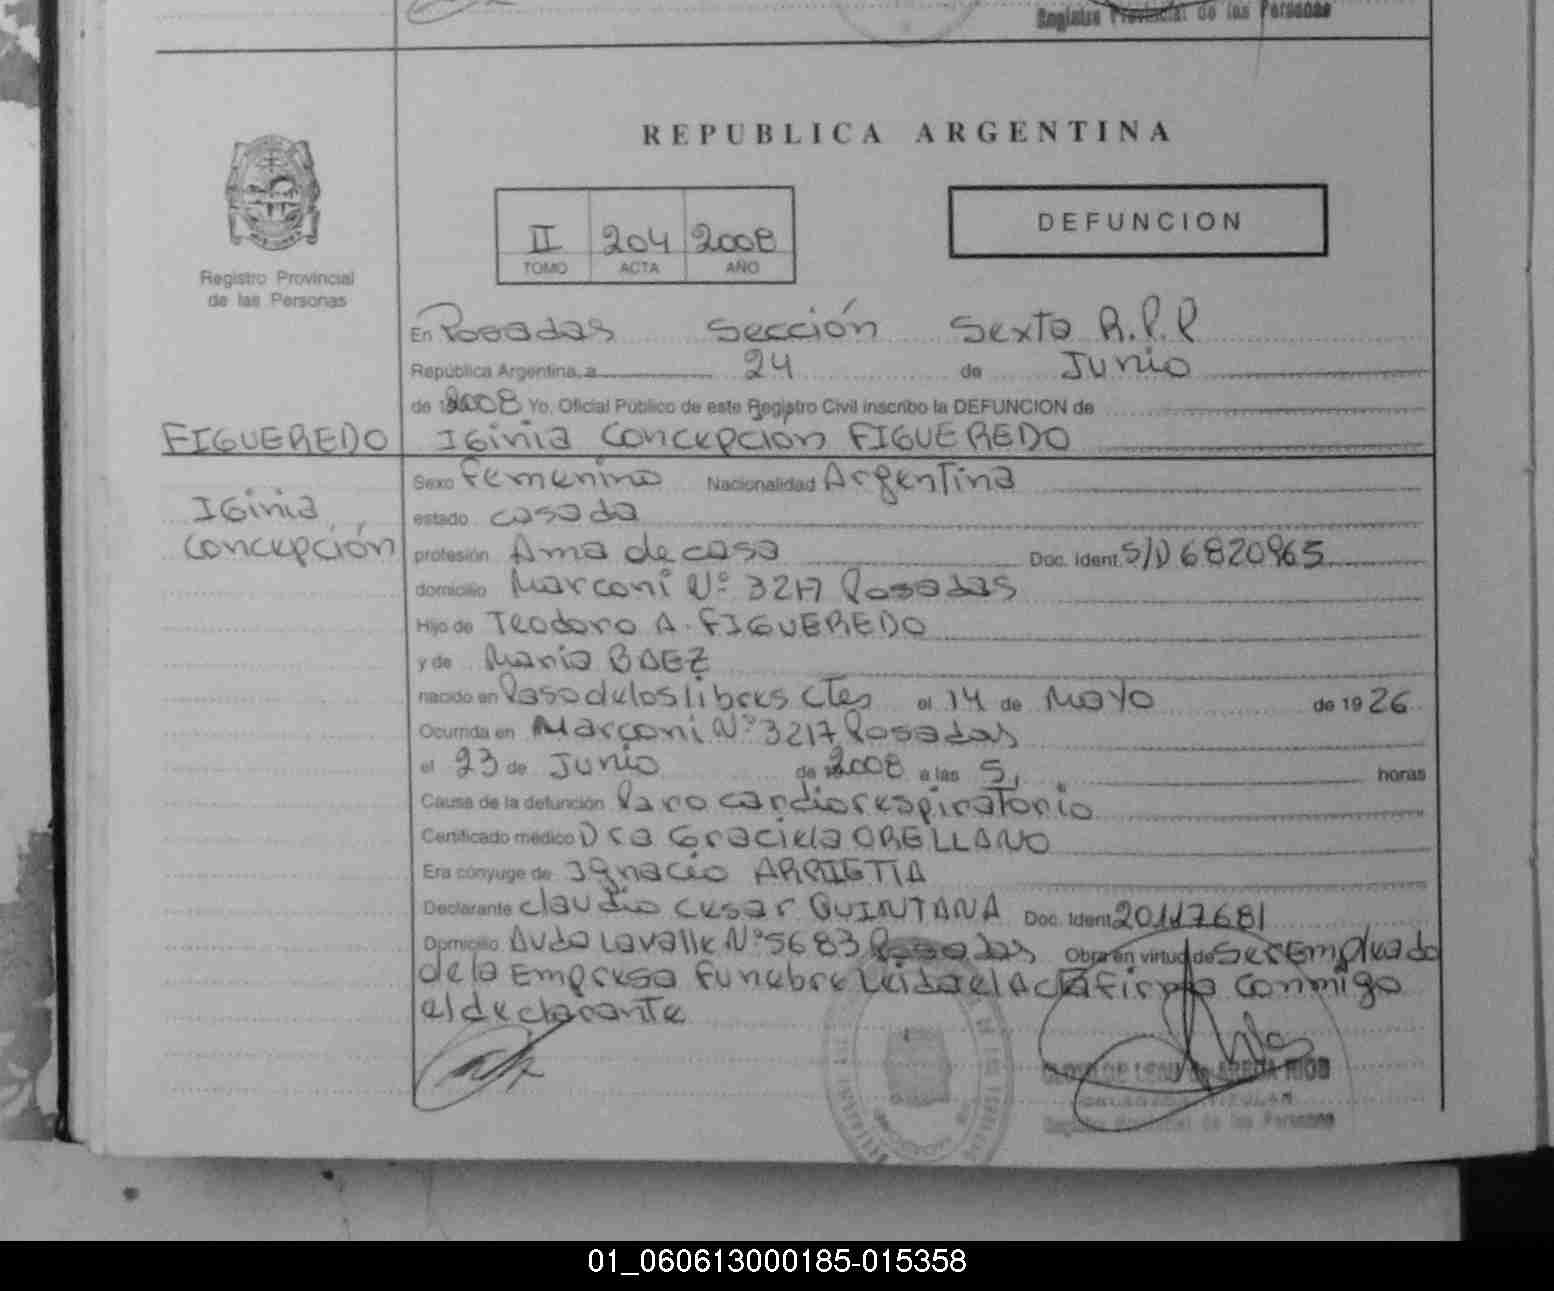 Registro Provincial de las Personas
REPUBLICA ARGENTINA
DEFUNCION
II 204 2008
TOMO ACTA AÑO
Registro Provincial
de las Personas
En Posadas Sección Sexta R.P.P
República Argentina, a 24 de Junio
de 2008 Yo, Oficial Público de este Registro Civil inscribo la DEFUNCION de
FIGUEREDO Iginia Concepcion FIGUEREDO
Sexo Femenino Nacionalidad Argentina
Iginia estado casada
Concepción profesión Ama de casa Doc. Ident. S/D 6820965
domicilio Marconi Nº 3217 Posadas
Hijo de Teodoro A. FIGUEREDO
y de Maria BAEZ
nacido en Paso de los libres Ctes el 14 de Mayo de 1926
Ocurrida en Marconi Nº 3217 Posadas
el 23 de Junio de 2008 a las 5, horas
Causa de la defunción Paro cardiorespiratorio
Certificado médico Dra Graciela ORELLANO
Era cónyuge de Ignacio ARRIETTA
Declarante Claudio Cesar QUINTANA Doc. Ident. 20117681
Domicilio Avda Lavalle Nº 5683 Posadas Obra en virtud de Ser Empleado
de la Empresa Funebre Leida el Acta Firma Conmigo
el declarante
Registro Provincial de las Personas
01_060613000185-015358